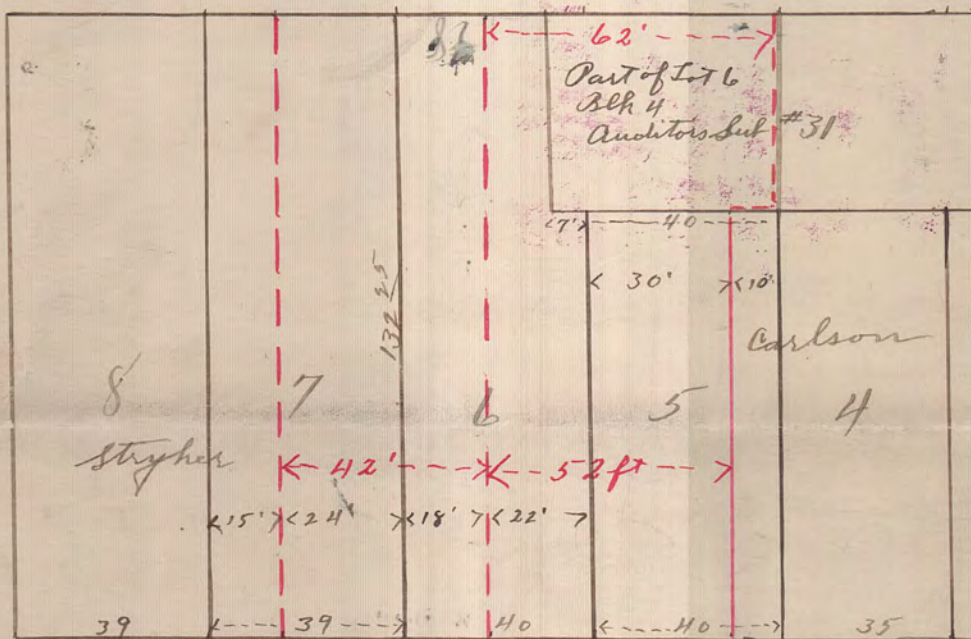 62'
Part of Lot 6
Blk 4
Auditors Sub #31
7' 40
30' 10'
132 25
Carlson
8 7 6 5 4
Stryker
42' 52 ft
15' 24' 18' 22'
39 39 40 40 35